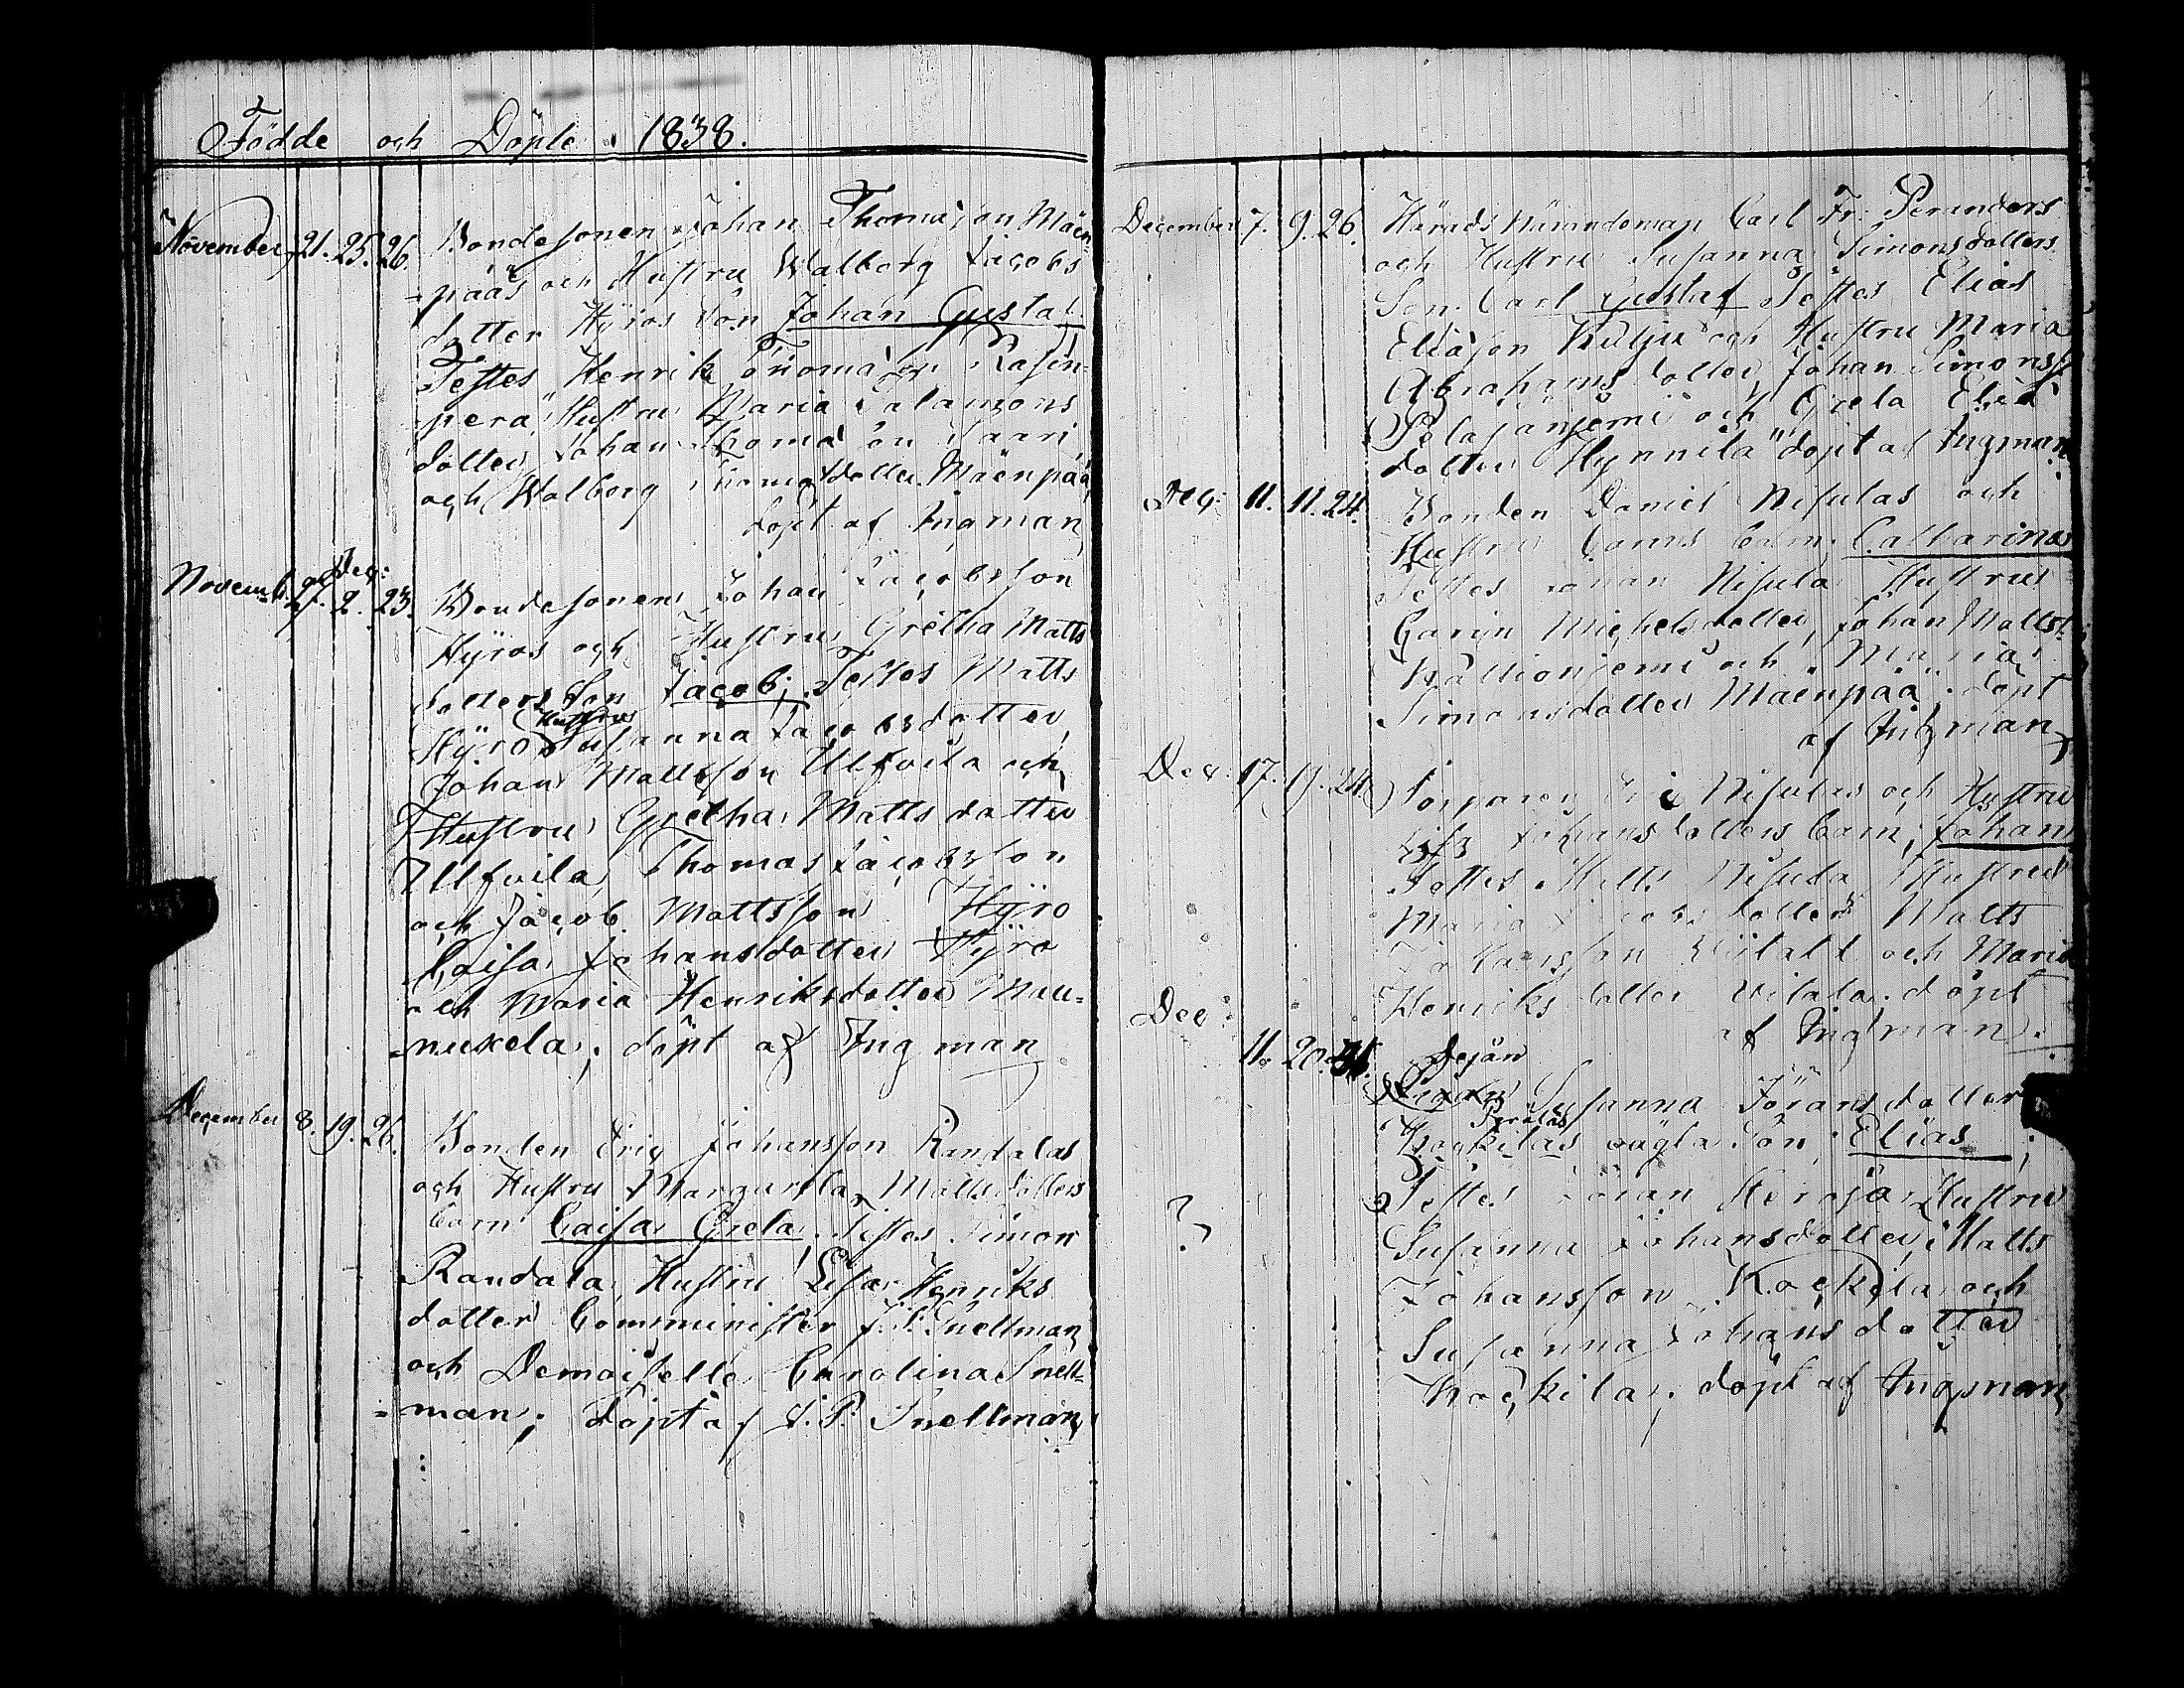 Födde och Döpte 1838.
November 21. 25. 26. Bondesonen Johan Thomasson Mäen-
pääs och Hustru Walborg Jacobs
dotter Hyros Son Johan Gustaf
Testes Henrik Thomasson Rasin-
perä, Hustru Maria Salamons
dotter, Johan Thomasson Saari,
och Walborg Thomasdotter Mäenpää,
döpt af Ingman
Novemb. 27. Dec: 2. 23. Bondesonen Johan Jacobsson
Hyros och Hustru Gretha Matts
dotters Son Jacob; Testes Matts
Hyro Hustru Susanna Jacobsdotter,
Johan Mattsson Ulfvila och
Hustru Gretha Mattsdotter
Ulfvila, Thomas Jacobsson
och Jacob Mattsson Hyro
Caisa Johansdotter Hyro
och Maria Henriksdotter Mau-
nuxela; döpt af Ingman
December 8. 19. 26. Bonden Eric Johansson Randalas
och Hustru Margareta Mattsdotters
barn Caisa Greta. Testes Simon
Randala, Hustru Lisa Henriks
dotter Comminister J. P. Snellman
och Demoiselle Carolina Snell-
man; döpt af J. P. Snellman
December 7. 9. 26. Härads Nämndeman Carl Fr. Perenders
och Hustru Susanna Simonsdotters
Son Carl Gustaf Testes Elias
Eliasson Kulju och Hustru Maria
Abrahamsdotter, Johan Simonss.
och Greta Elias
dotter Hynnilä döpt af Ingman
Dec: 11. 11. 24. Bonden Daniel Nisulas och
Hustru Barn Catharina
Testes Johan Nisula Hustru
Carin Michelsdotter, Johan Matts:
Kallionjemi och Maria
Simonsdotter Mäenpää. döpt
af Ingman
Dec: 17. 19. 24. Nisulas och Hustru
Johansdotters barn; Johan
Testes Matts Nisula, Hustru
Maria Jacobsdotter Matts
Johansson och Maria
Henriksdotter Vitala. döpt
af Ingman.
Dec: 11. 20. Dejan
Susanna Göransdotter
Perälas
Kockilas oägta Son Elias;
Testes Göran Hustru
Susanna Johansdotter, Matts
Johansson Kockila och
? Susanna Johansdotter
Kockila; döpt af Ingman